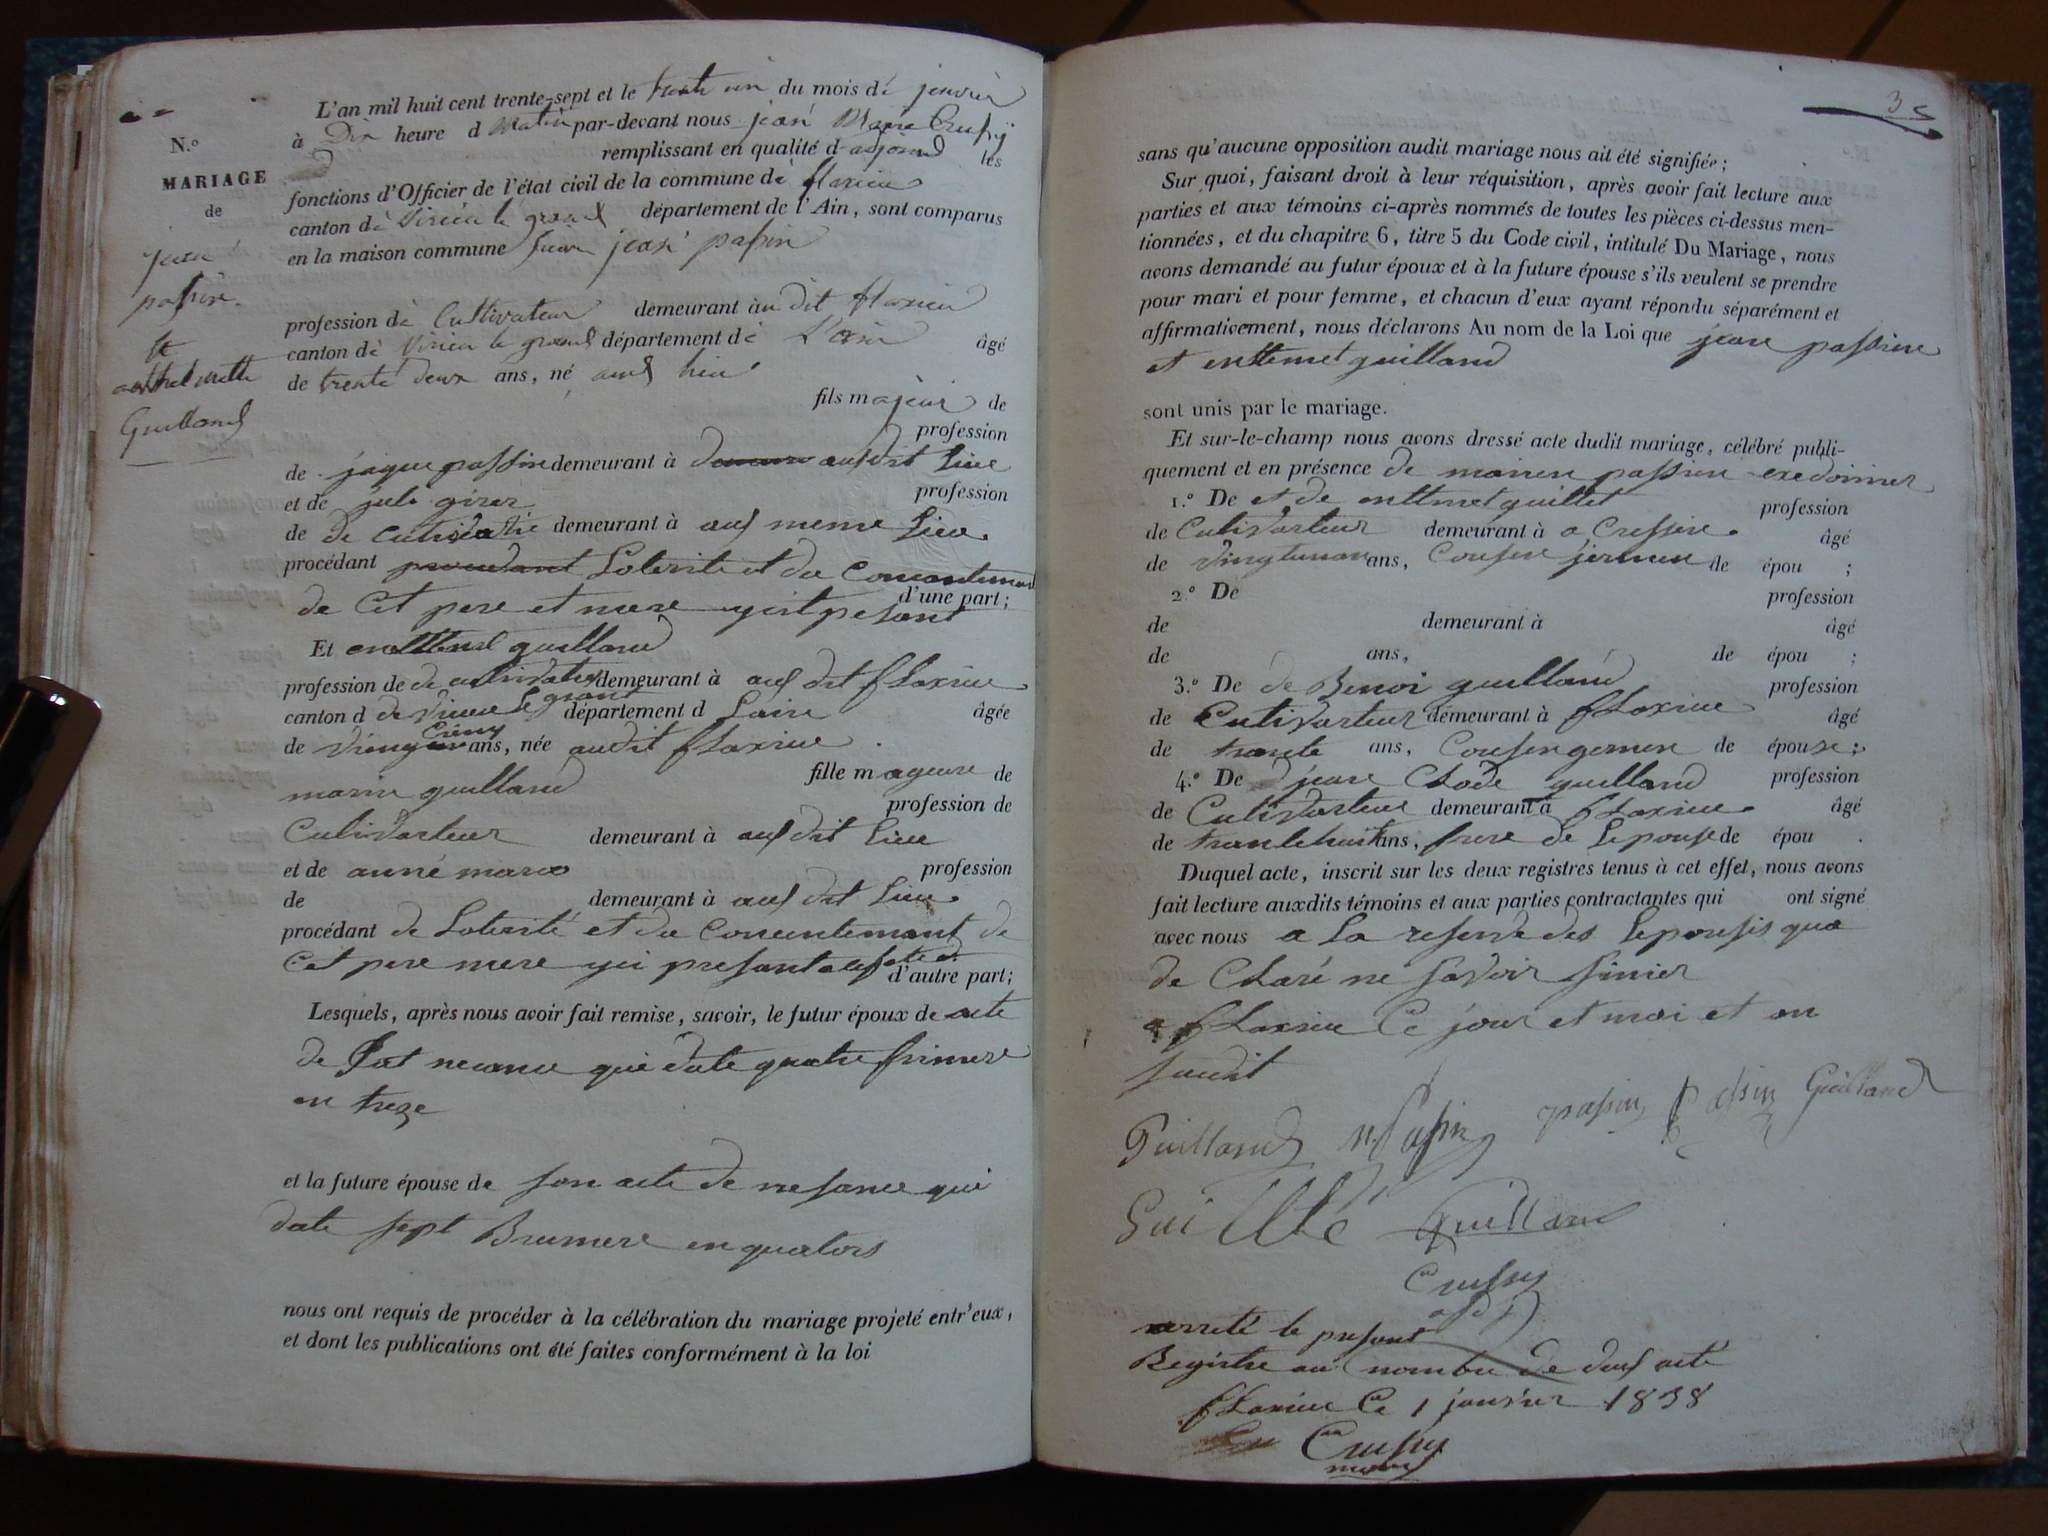 N.º
MARIAGE
de
jean
passin
et
Guilland
L'an mil huit cent trente-sept et le trente un du mois de janvier
à Dix heure d matin par-devant nous jean Marie Crussy
remplissant en qualité d adjoind les
fonctions d'Officier de l'état civil de la commune de flaxieu
canton de Virieu le grand département de l'Ain, sont comparus
en la maison commune jean passin
profession de Cultivateur demeurant au dit flaxieu
canton de Virieu le grand département de L'ain âgé
de trente deux ans, né audit lieu
fils majeur de
profession
de jaque passin demeurant à ausdit Lieu
et de jule girer profession
de de demeurant à aus meme Lieu
procédant Loterite et du
de Cet pere et mere d'une part;
Et guilland
profession de de demeurant à aus dit fLaxieu
canton d de Vireu Le grant département d Lain âgée
de ans, née audit fLaxieu
fille mageure de
marin guilland
profession de
Cutivarteur demeurant à aus dit Lieu
et de anné marco profession
de demeurant à aus dit Lieu
procédant de Loterité et du Concentemant de
Cet pere mere qui presant d'autre part;
Lesquels, après nous avoir fait remise, savoir, le futur époux de acte
de qui date quatre frimere
en treze
et la future épouse de son acte de nesance qui
date sept Brumere en quators
nous ont requis de procéder à la célébration du mariage projeté entr'eux,
et dont les publications ont été faites conformément à la loi
35
sans qu'aucune opposition audit mariage nous ait été signifiée;
Sur quoi, faisant droit à leur réquisition, après avoir fait lecture aux
parties et aux témoins ci-après nommés de toutes les pièces ci-dessus men-
tionnées, et du chapitre 6, titre 5 du Code civil, intitulé Du Mariage, nous
avons demandé au futur époux et à la future épouse s'ils veulent se prendre
pour mari et pour femme, et chacun d'eux ayant répondu séparément et
affirmativement, nous déclarons Au nom de la Loi que jean passin
et enttemet guilland
sont unis par le mariage.
Et sur-le-champ nous avons dressé acte dudit mariage, célébré publi-
quement et en présence de passin
1.º De et de enttmet guillet profession
de Cutivarteur demeurant à a Cressin âgé
de ans, Cousin jermen de épou ;
2.º De profession
de demeurant à âgé
de ans, de épou ;
3.º De de Benoi guilland profession
de Cutivarteur demeurant à fLaxieu âgé
de trante ans, Cousen gemen de épouse;
4.º De jean Clode guilland profession
de Cutivarteur demeurant à fLaxieu âgé
de trantehuit ans, frere de Lepouse de épou .
Duquel acte, inscrit sur les deux registres tenus à cet effet, nous avons
fait lecture auxdits témoins et aux parties contractantes qui ont signé
avec nous a La reserve des Lepousis qua
de Claré ne savoir sinier
a fLaxieu Ce jour et moi et an
sudit
Guilland passin Guilland
Guillté Guilland
Crussy
adj
arreté le present
Registre au nombre de deux acte
fLaxieu Ce 1 janvier 1838
Crussy